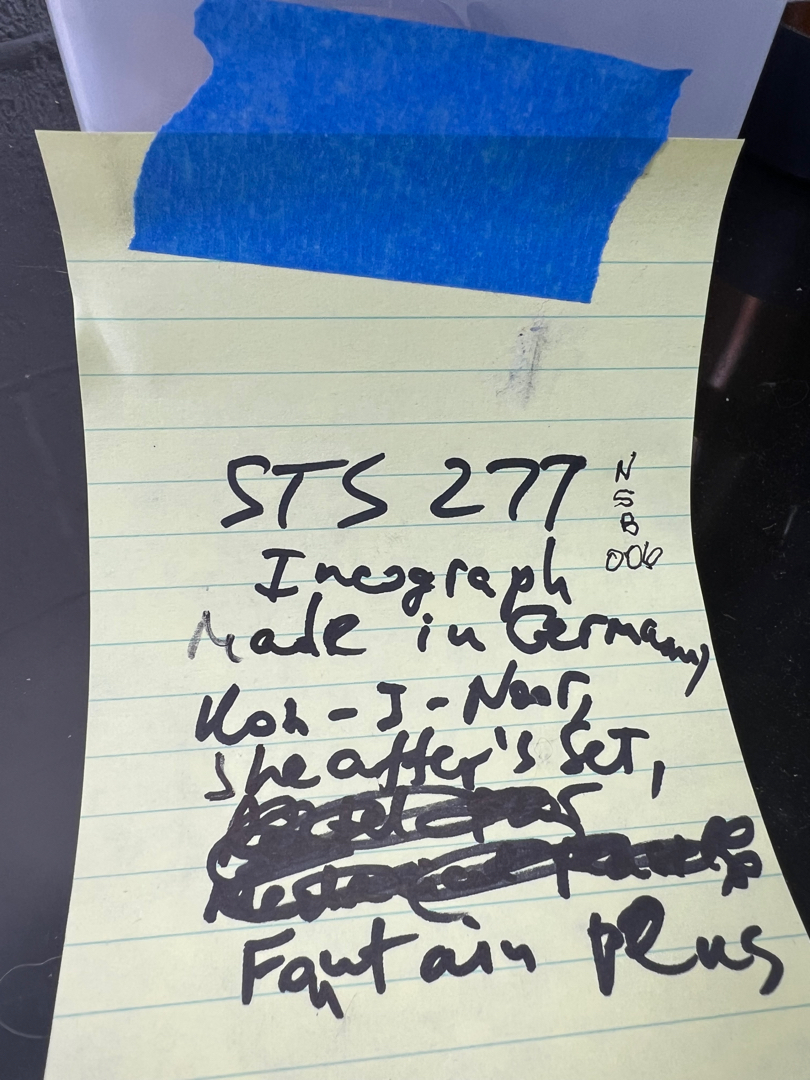 STS 277
N
S
B
006
Incograph
Made in Germany
Koh-I-Noor,
Sheaffer's Set,
Fauntain pens